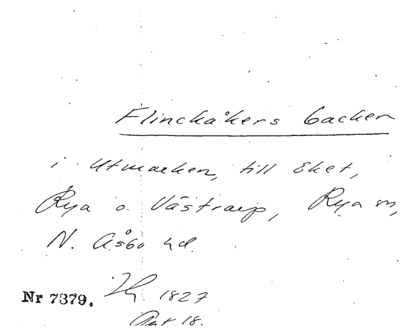 Flinckåkers backen
i Utmarken, till Eket,
Rya o. Västraep, Rya sn,
N. Åsbo hd.
Nr 7379. 1827
Akt 18.